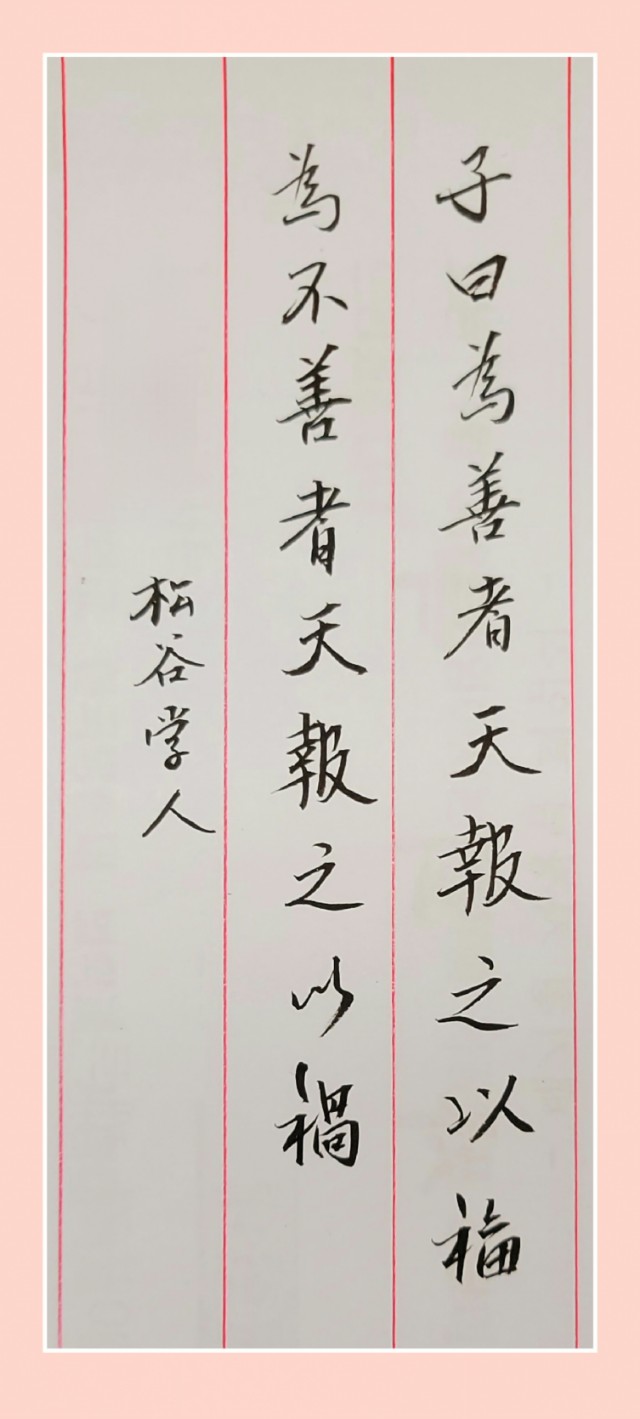 子曰為善者天報之以福
為不善者天報之以禍
松谷学人